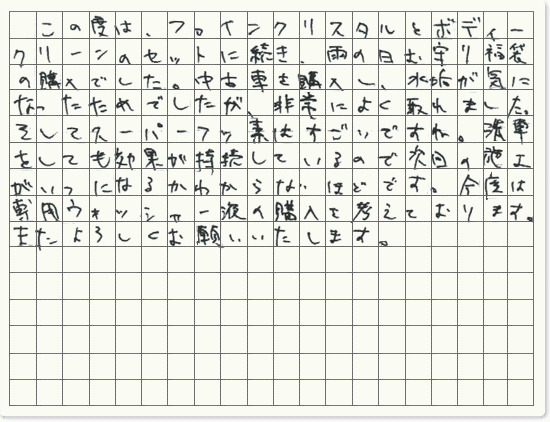 この度は、フロインクリスタルとボディー
クリーンのセットに続き、雨の日お守り福袋
の購入でした。中古車を購入し、水垢が気に
なったためでしたが、非常によく取れました。
そしてスーパーフッ素はすごいですね。洗車
をしても効果が持続しているので次回の施工
がいつになるかわからないほどです。今度は
専用ウォッシャー液の購入を考えております。
またよろしくお願いいたします。